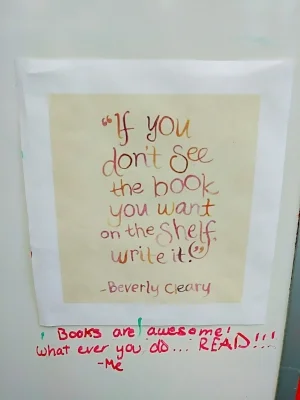 "If you
don't see
the book
you want
on the shelf,
write it!"
-Beverly Cleary
Books are awesome!
what ever you do... READ!!!
-Me